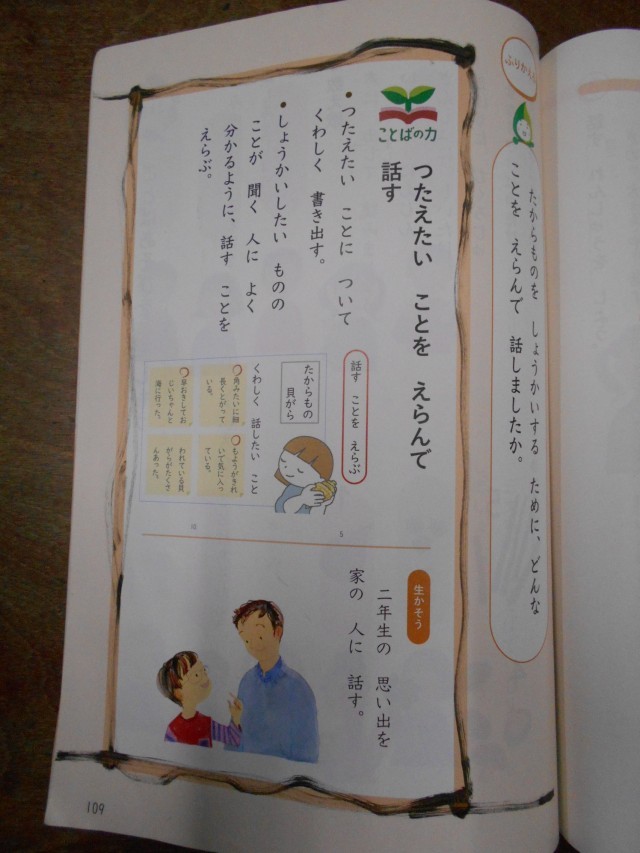 ふりかえ
たからものを しょうかいする ために、どんな
ことを えらんで 話しましたか。
ことばの力
つたえたい ことを えらんで
話す
• つたえたい ことに ついて
くわしく 書き出す。
• しょうかいしたい ものの
ことが 聞く 人に よく
分かるように、話す ことを
えらぶ。
話す ことを えらぶ
たからもの
貝がら
くわしく 話したい こと
角みたいに細
長くとがって
いる。
もようがきれ
いで気に入っ
ている。
早おきしてお
じいちゃんと
海に行った。
われている貝
がらがたくさ
んあった。
5
10
生かそう
二年生の 思い出を
家の 人に 話す。
109